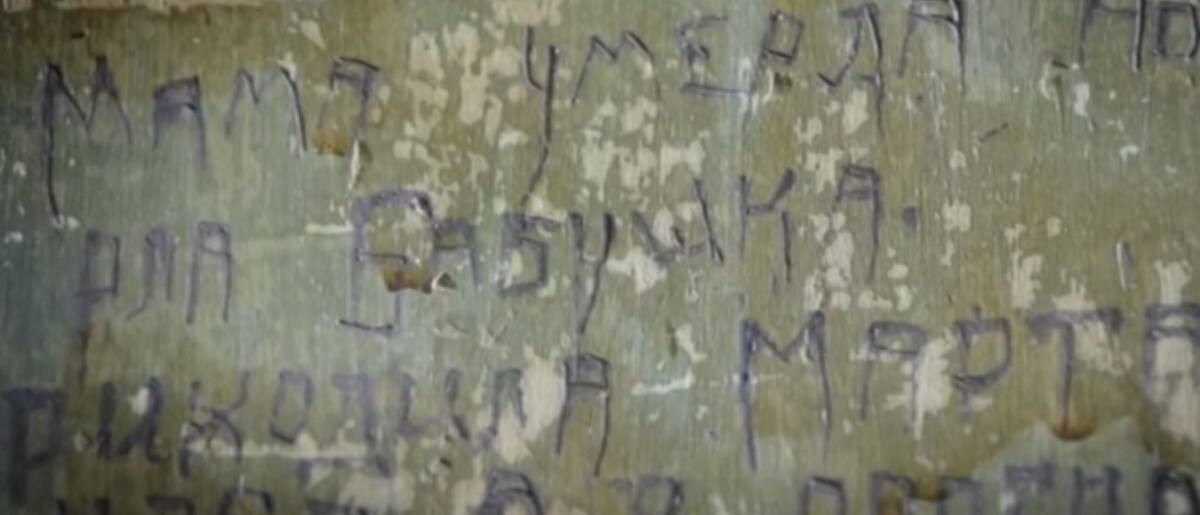 Мама умерла но
рла Бабушка.
риходила Марта